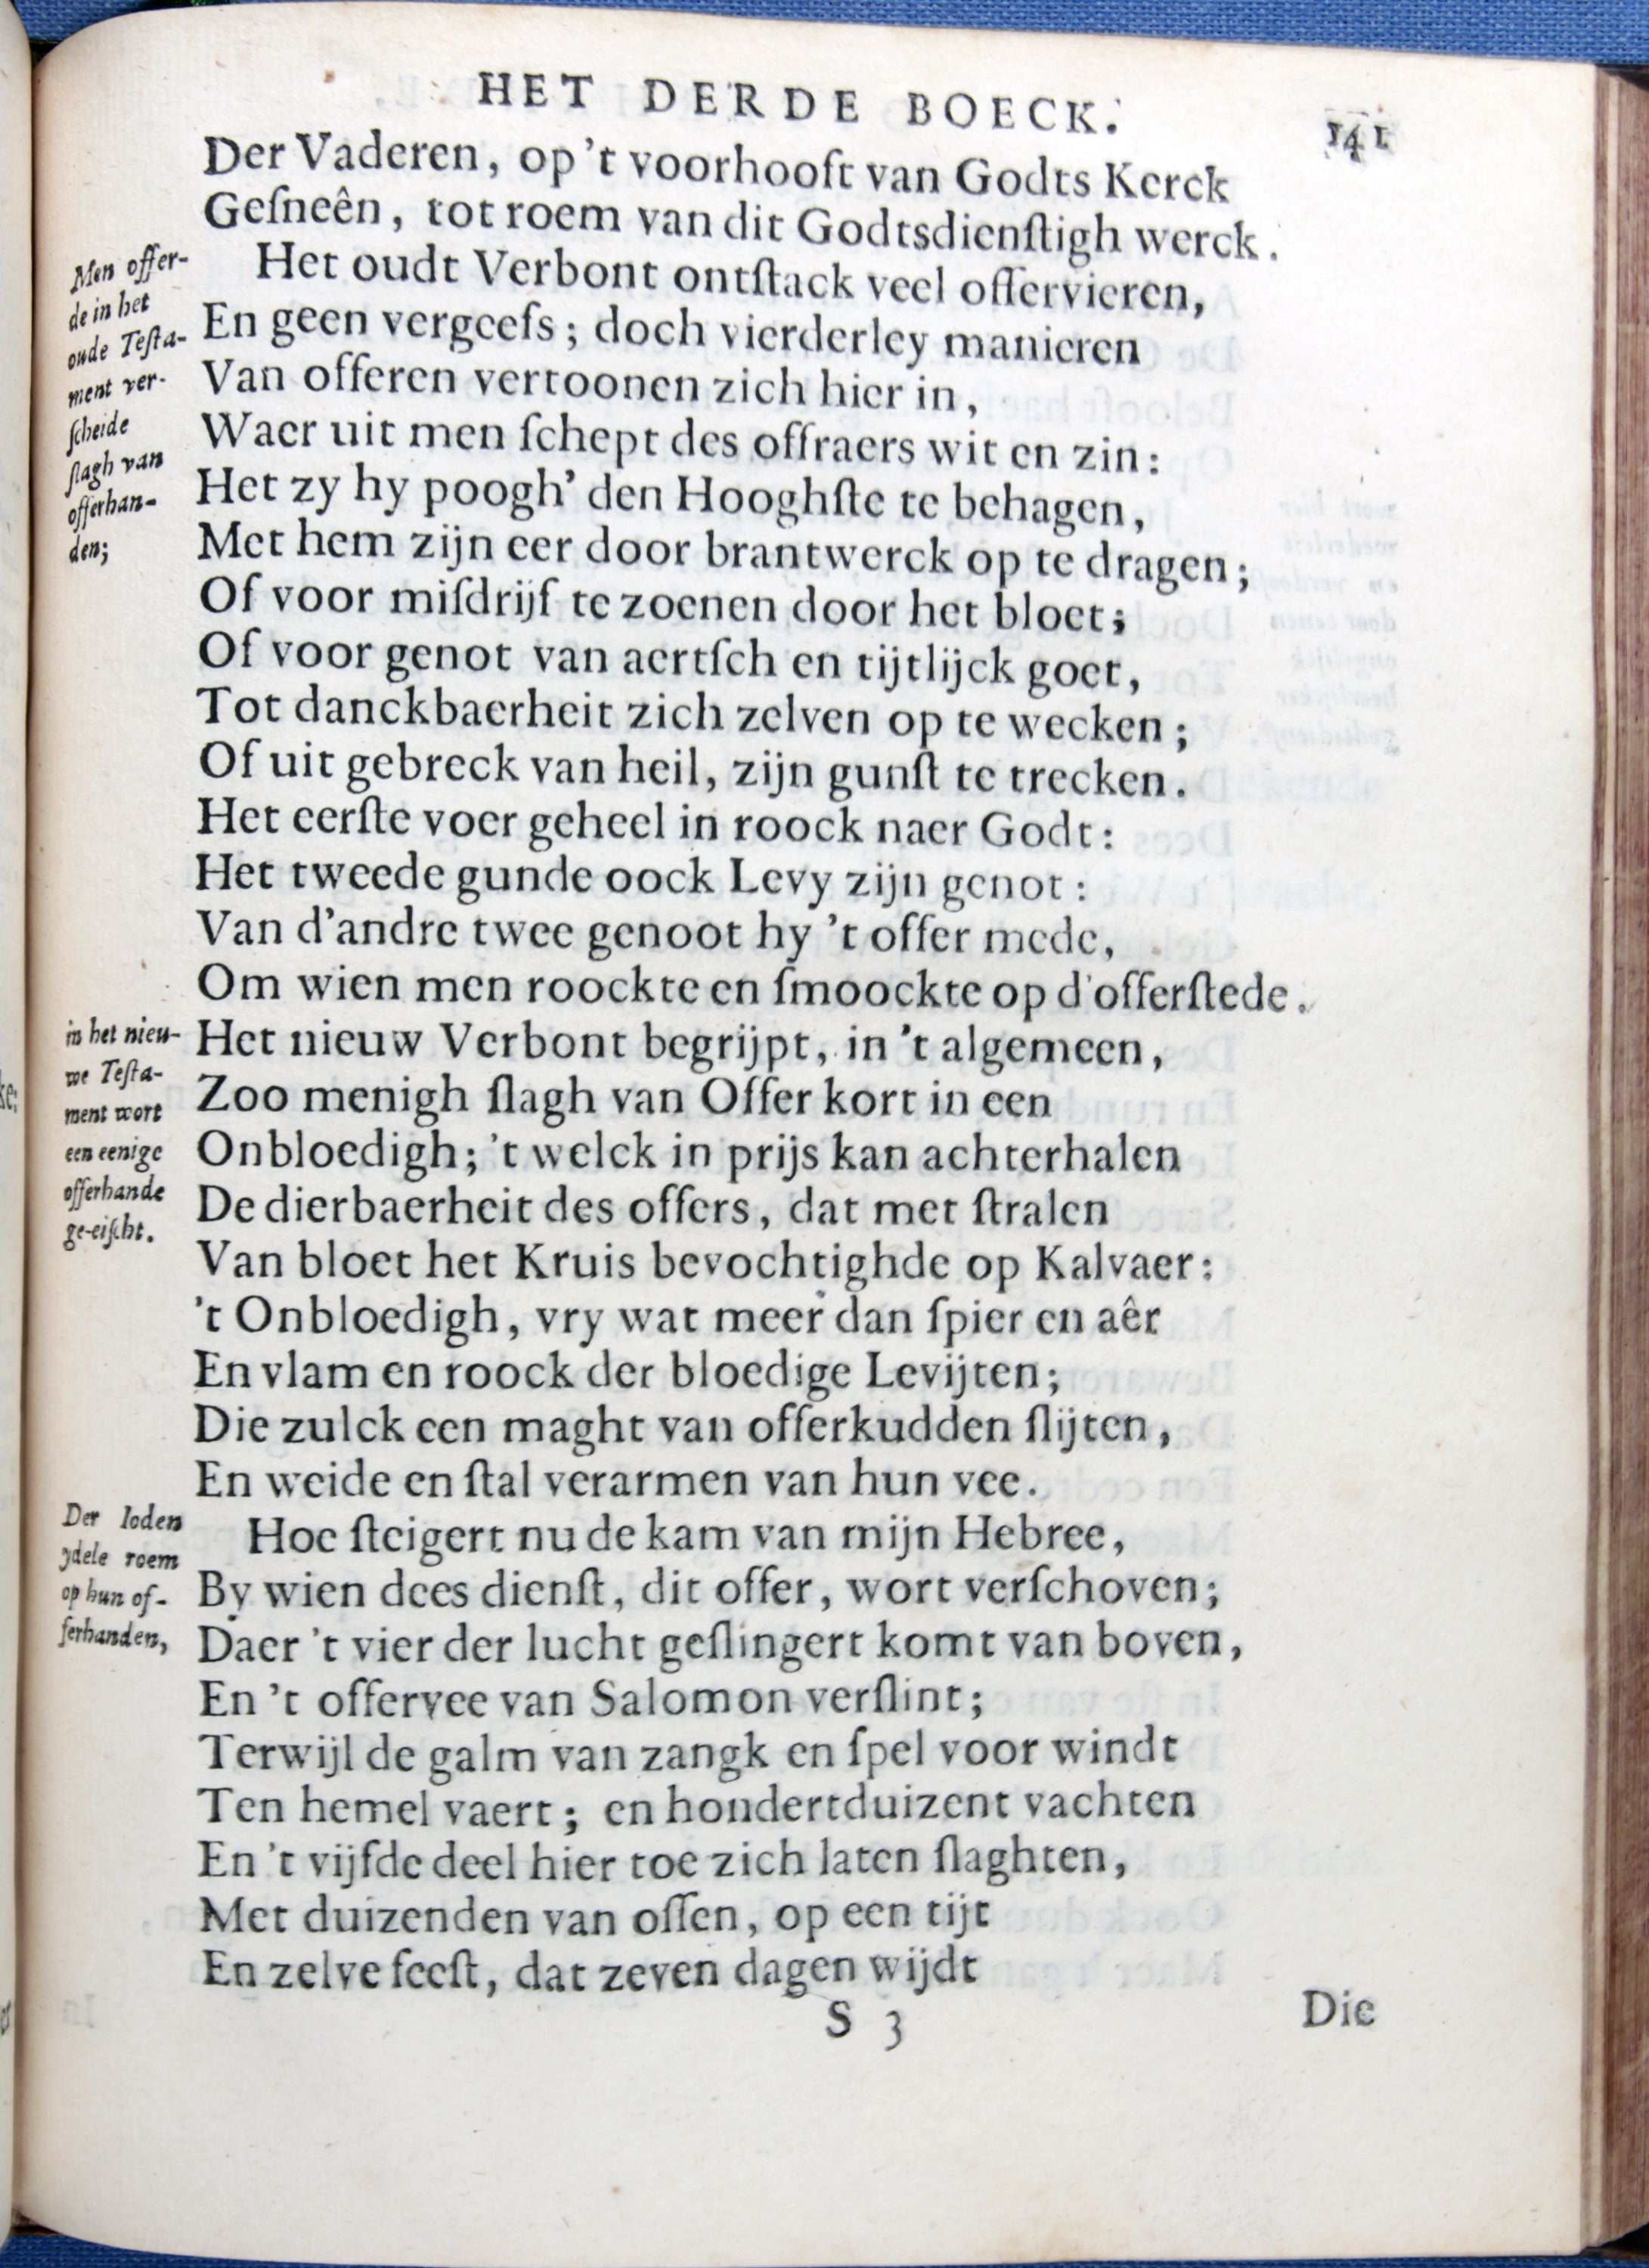 HET DERDE BOECK. 141
Der Vaderen, op 't voorhooft van Godts Kerck
Geſneên, tot roem van dit Godtsdienſtigh werck.
Men offer-
de in het
oude Teſta-
ment ver-
ſcheide
ſlagh van
offerhan-
den;
Het oudt Verbont ontſtack veel offervieren,
En geen vergeefs; doch vierderley manieren
Van offeren vertoonen zich hier in,
Waer uit men ſchept des offraers wit en zin:
Het zy hy poogh' den Hooghſte te behagen,
Met hem zijn eer door brantwerck op te dragen;
Of voor miſdrijf te zoenen door het bloet;
Of voor genot van aertſch en tijtlijck goet,
Tot danckbaerheit zich zelven op te wecken;
Of uit gebreck van heil, zijn gunſt te trecken.
Het eerſte voer geheel in roock naer Godt:
Het tweede gunde oock Levy zijn genot:
Van d'andre twee genoot hy 't offer mede,
Om wien men roockte en ſmoockte op d'offerſtede.
in het nieu-
we Teſta-
ment wort
een eenige
offerhande
ge-eiſcht.
Het nieuw Verbont begrijpt, in 't algemeen,
Zoo menigh ſlagh van Offer kort in een
Onbloedigh; 't welck in prijs kan achterhalen
De dierbaerheit des offers, dat met ſtralen
Van bloet het Kruis bevochtighde op Kalvaer:
't Onbloedigh, vry wat meer dan ſpier en aêr
En vlam en roock der bloedige Levijten;
Die zulck een maght van offerkudden ſlijten,
En weide en ſtal verarmen van hun vee.
Der Ioden
ydele roem
op hun of-
ferhanden,
Hoe ſteigert nu de kam van mijn Hebree,
By wien dees dienſt, dit offer, wort verſchoven;
Daer 't vier der lucht geſlingert komt van boven,
En 't offervee van Salomon verſlint;
Terwijl de galm van zangk en ſpel voor windt
Ten hemel vaert; en hondertduizent vachten
En 't vijfde deel hier toe zich laten ſlaghten,
Met duizenden van oſſen, op een tijt
En zelve feeſt, dat zeven dagen wijdt
S 3 Die